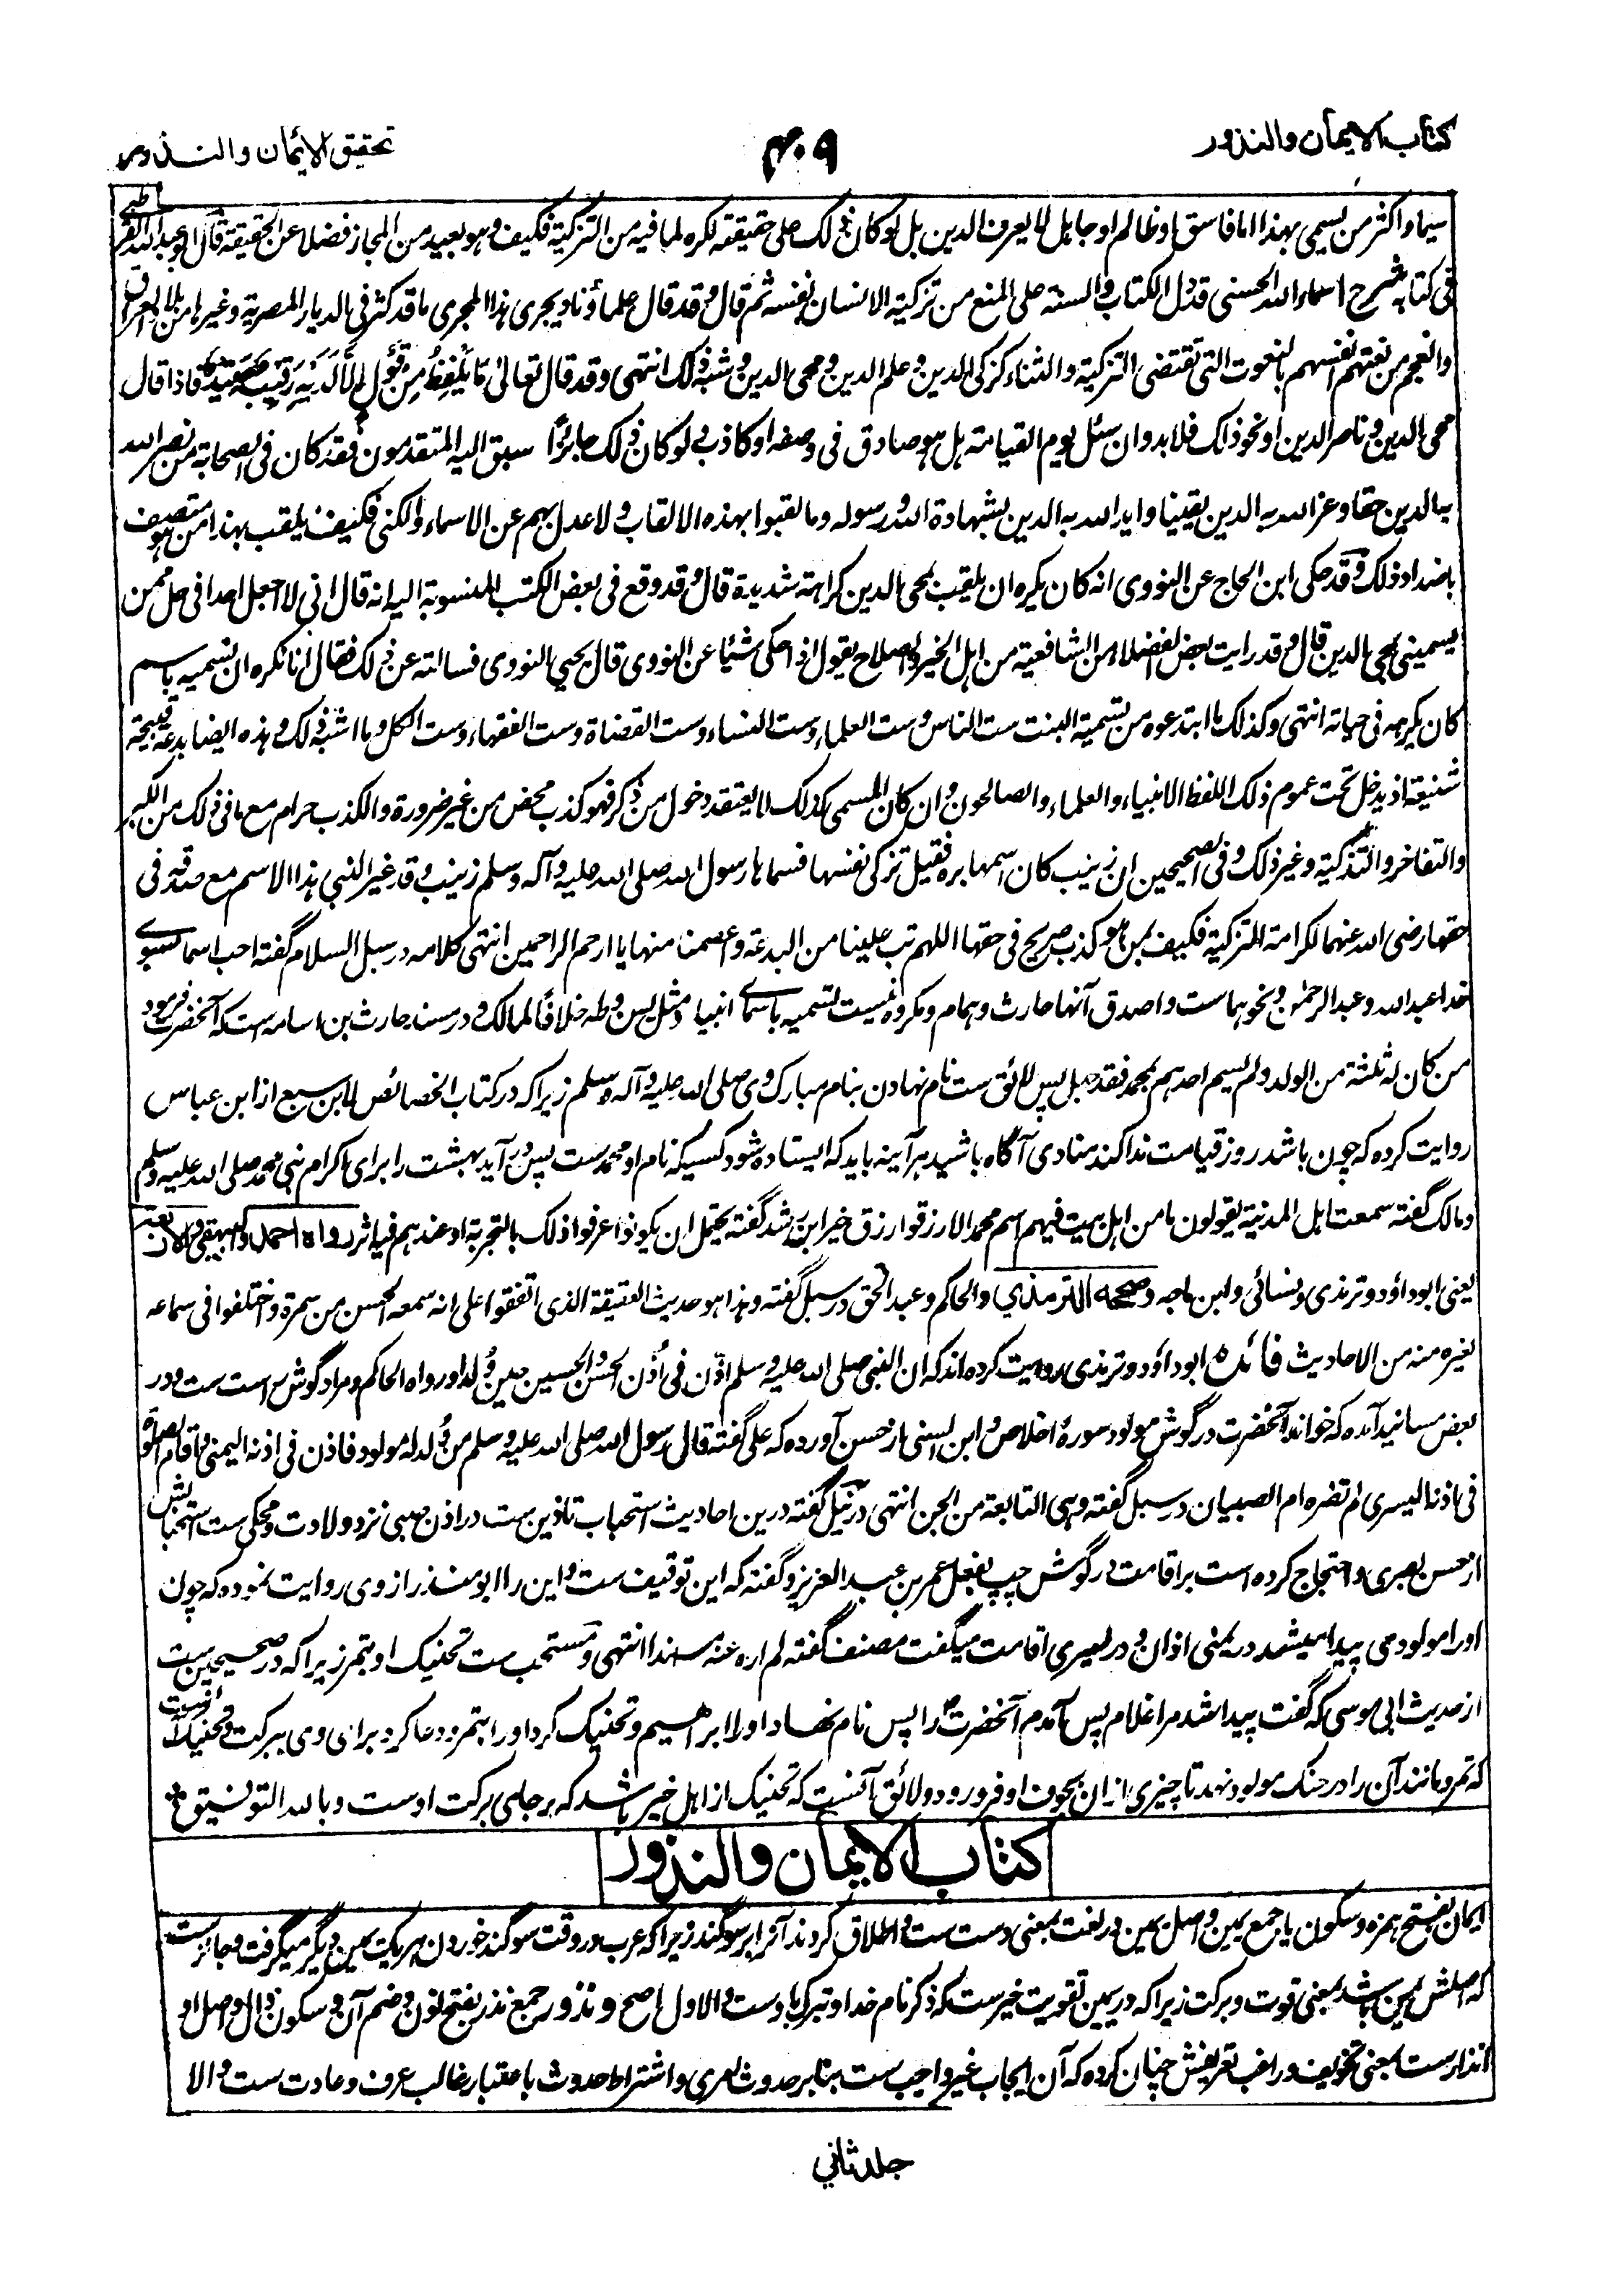 كتاب الايمان والنذور
۴۰۹
تحقيق الأيمان والنذور
سيما واكثر من يسمى بهذا اما فاسق او ظالم او جاهل لا يعرف الدين بل لو كان ذلك على حقيقته لكره لما فيه من التزكية فكيف وهو بعيد من المجاز فضلا عن الحقيقة قال ابو عبد الله القرطبي
فى كتابه شرح اسماء الله الحسنى قد دل الكتاب والسنة على المنع من تزكية الانسان نفسه ثم قال وقد قال علماؤنا ويجرى هذا المجرى ما قد كثر فى الديار المصرية وغيرها من بلاد العراق
والعجم من نعتهم انفسهم بالنعوت التى تقتضى التزكية والثناء كزكى الدين وعلم الدين ومحى الدين وشبه ذلك انتهى وقد قال تعالى مَا يَلْفِظُ مِنْ قَوْلٍ اِلَّا لَدَيْهِ رَقِيبٌ عَتِيدٌ فاذا قال
محى الدين وناصر الدين او نحو ذلك فلابد وان سئل يوم القيامة هل هو صادق فى وصفه او كاذب ولو كان ذلك جائزًا سبق اليه المتقدمون فقد كان فى الصحابة من نصر الله
به الدين حقا وعز الله به الدين يقينا وايد الله به الدين بشهادة الله ورسوله وما لقبوا بهذه الالقاب ولا عدل بهم عن الاسماء والكنى فكيف يلقب بهذا من هو متصف
باضداد ذلك وقد حكى ابن الحاج عن النووى انه كان يكره ان يلقب بمحى الدين كراهة شديدة قال وقد وقع فى بعض الكتب المنسوبة اليه انه قال انى لا اجعل احدا فى حل ممن
يسمينى بمحى الدين قال وقد رايت بعض الفضلاء من الشافعية من اهل الخير والصلاح يقول اذا حكى شيئا عن النووى قال يحيى النووى فسالته عن ذلك فقال انا نكره ان نسميه باسم
كان يكرهه فى حياته انتهى وكذلك ما ابتدعوه من تسمية البنت ست الناس وست العلماء وست النساء وست القضاة وست الفقهاء وست الكل وما اشبه ذلك وهذه ايضا بدعة قبيحة
شنيعة اذ يدخل تحت عموم ذلك اللفظ الانبياء والعلماء والصالحون وان كان المسمى كذلك لا يعتقد دخول من ذكر فهو كذب محض من غير ضرورة والكذب حرام مع ما فى ذلك من الكبر
والتفاخر والتزكية وغير ذلك وفى الصحيحين ان زينب كان اسمها بره فقيل تزكى نفسها فسماها رسول الله صلى الله عليه وآله وسلم زينب وقد غير النبى هذا الاسم مع صدقه فى
حقها رضى الله عنها لكراهة التزكية فكيف بمن هو كذب صريح فى حقها اللهم تب علينا من البدعة واعصمنا منها يا ارحم الراحمين انتهى كلامه در سبل السلام گفته احب اسما بسوے
خدا عبد الله وعبد الرحمٰن ونحو هماست واصدق آنها حارث وهمام ومكروه نيست تسميه باسماے انبيا ومثل يس وطه خلافًا لمالك ودر مسند حارث بن اسامه ست كه آنحضرت فرمود
من كان له ثلثة من الولد ولم يسم احدهم بمحمد فقد جهل پس لائق ست نام نهادن بنام مبارك وى صلى الله عليه وآله وسلم زيرا كه در كتاب الخصائص لابن سبع از ابن عباس
روايت كرده كه چون باشد روز قيامت ندا كند منادى آگاه باشيد هر آينه بايد كه ايستاده شود كسيكه نام او محمد ست پس در آيد بهشت را براى اكرام نبى محمد صلى الله عليه وسلم
ومالك گفته سمعت اهل المدينة يقولون ما من اهل بيت فيهم اسم محمد الا رزقوا رزق خير ابن رشد گفته يحتمل ان يكونوا عرفوا ذلك بالتجربة او عندهم فيه اثر رواه احمد والبيهقى والاربعة
يعنى ابوداؤد وترمذى ونسائى وابن ماجه وصححه الترمذي والحاكم وعبد الحق در سبل گفته وهذا هو حديث العقيقة الذى اتفقوا على انه سمعه الحسن من سمرة واختلفوا فى سماعه
لغيره منه من الاحاديث فائده ابوداؤد وترمذى روايت كرده اند كه ان النبى صلى الله عليه وسلم اذّن فى اُذن الحسن والحسين حين ولدا ورواه الحاكم ومراد گوش راست ست ودر
بعض مسانيد آمده كه خواند آنحضرت در گوش مولود سورهٔ اخلاص وابن السنى از حسن آورده كه على گفته قال رسول الله صلى الله عليه وسلم من وُلد له مولود فاذن فى اذنه اليمنى واقام الصلوة
فى اذنه اليسرى لم تضره ام الصبيان در سبل گفته وهى التابعة من الجن انتهى در نيل گفته درين احاديث استحباب تاذين ست در اذن صبى نزد ولادت ومحكى ست استحبابش
از حسن بصرى واحتجاج كرده است بر اقامت در گوش چپ بفعل عمر بن عبد العزيز وگفته كه اين توقيف ست واين را ابو منذر از وى روايت نموده كه چون
او را مولودى پيدا ميشد در يمنى اذان ودر يسرى اقامت ميگفت مصنف گفته لم اره عنه مسندا انتهى ومستحب ست تحنيك او بتمر زيرا كه در صحيحين ست
از حديث ابى موسى كه گفت پيدا شد مرا غلام پس آمدم آنحضرت را پس نام نهاد او را ابراهيم وتحنيك كرد او را بتمر ودعا كرد براى وى ببركت وتحنيك آنست
كه تمر ومانند آن را در حنك مولود نهد تا چيزى از ان بجوف او فرو رود ولائق آنست كه تحنيك از اهل خير باشد كه بر جلى بركت اوست وبالله التوفيق
كتاب الايمان والنذور
ايمان بفتح همزه وسكون يا جمع يمين واصل يمين در لغت بمعنى دست ست واطلاق كردند آنرا بر سوگند زيرا كه عرب در وقت سوگند خوردن هر يك يمين ديگر ميگرفت وجائزست
كه اصلش يمين باشد بمعنى قوت وبركت زيرا كه در يمين تقويت خيرست كه ذكر نام خدا وتبرك باوست والاول اصح ونذور جمع نذر بفتح نون وضم آن وسكون ذال واصل او
انذارست بمعنى تخويف وراغب تعريفش چنان كرده كه آن ايجاب غير واجب ست بنا بر حدوث امرى واشتراط حدوث باعتبار غالب عرف وعادت ست والا
جلد ثاني